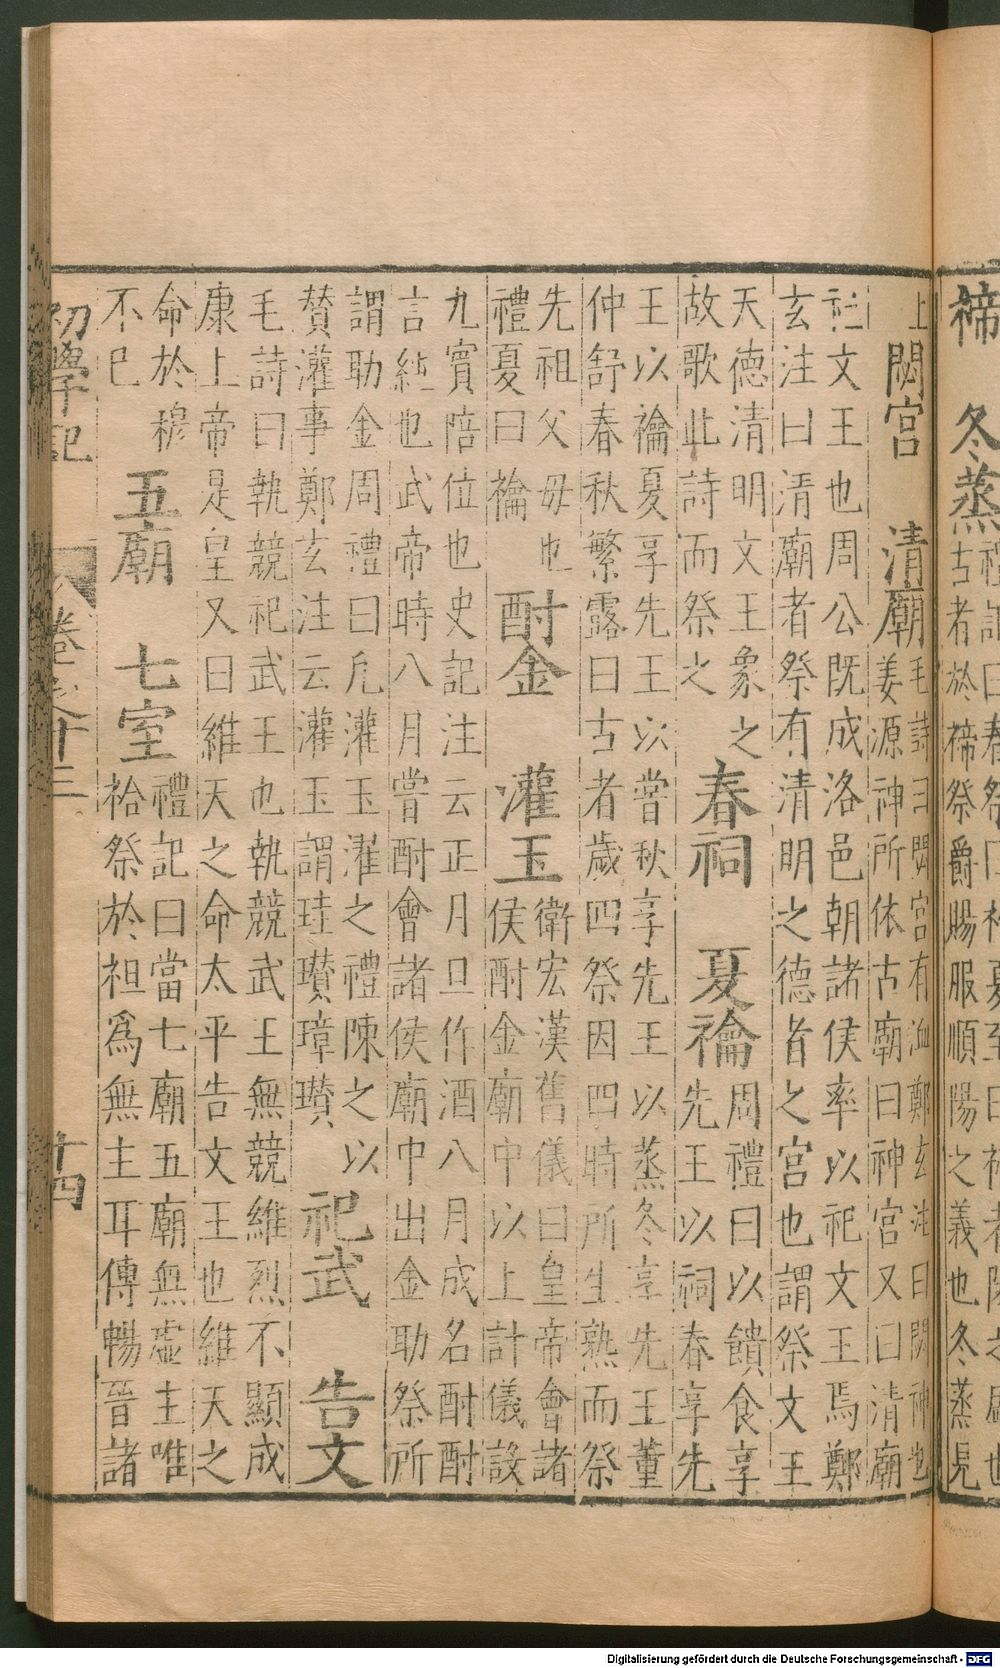 禘 冬蒸
古者於禘祭爵賜服順陽之義也冬蒸見
上 閟宮 清廟 毛詩曰閟宮有侐鄭玄注曰閟神也
姜源神所依古廟曰神宮又曰清廟
祀文王也周公既成洛邑朝諸侯率以祀文王焉鄭
玄注曰清廟者祭有清明之德者之宮也謂祭文王
天德清明文王象之
故歌此詩而祭之 春祠 夏禴 周禮曰以饋食享
先王以祠春享先
王以禴夏享先王以嘗秋享先王以蒸冬享先王董
仲舒春秋繁露曰古者歲四祭因四時所生熟而祭
先祖父毋也
禮夏曰禴 酎金 灌玉 衛宏漢舊儀曰皇帝會諸
侯酎金廟中以上計儀設
九賓陪位也史記注云正月旦作酒八月成名酎酎
言純也武帝時八月嘗酎會諸侯廟中出金助祭所
謂助金周禮曰凡灌玉濯之禮陳之以
贊灌事鄭玄注云灌玉謂珪瓚璋瓚 祀武 告文
毛詩曰執競祀武王也執競武王無競維烈不顯成
康上帝是皇又曰維天之命太平告文王也維天之
命於穆
不已 五廟 七室 禮記曰當七廟五廟無虛主唯
祫祭於祖爲無主耳傅暢晉諸
初學記 卷之十三 十四
Digitalisierung gefördert durch die Deutsche Forschungsgemeinschaft - DFG